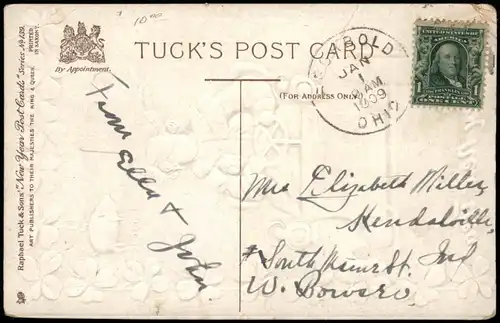 10⁰⁰
TUCK'S POST CARD
By Appointment.
(FOR ADDRESS ONLY)
Raphael Tuck & Sons' "New Year Post Cards" Series No 139.
ART PUBLISHERS TO THEIR MAJESTIES THE KING & QUEEN.
PRINTED
IN SAXONY.
JAN
AM
1909
OHIO
UNITED STATES OF AMERICA
1
ONE CENT
From Ella &
John.
Mrs Elizabeth Miller
Kendalville,
Ind
# South Main St.
W.